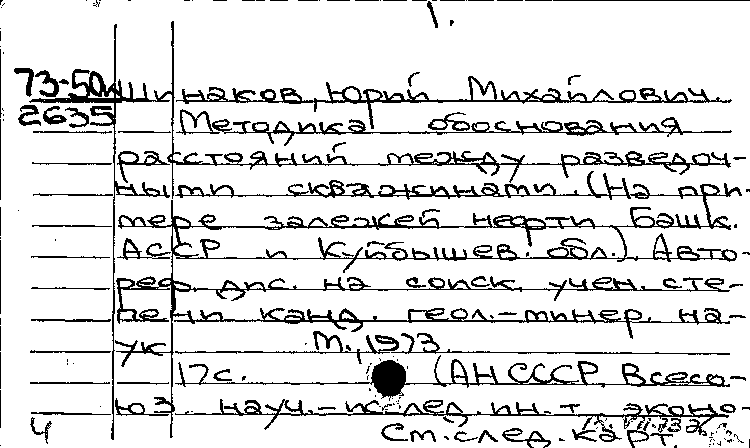 1.
73-50
2635
Шинаков, Юрий Михайлович.
Методика обоснования
расстояний между разведоч-
ными скважинами. (На при-
мере залежей нефти Башк.
АССР и Куйбышев. обл.). Авто-
реф. дис. на соиск. учен. сте-
пени канд. геол.-минер. на-
ук М., 1973.
17 с. (АН СССР. Всесо-
юз. науч.-исслед. ин-т эконо-
4 См. след. карт.